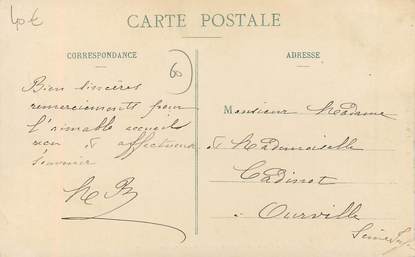 40€
CARTE POSTALE
CORRESPONDANCE
60
ADRESSE
Bien sincères
remerciements pour
l'aimable accueil
reçu & affectueux
souvenir
Monsieur Madame
& Mademoiselle
Cadinot
à Ourville
Seine Inf